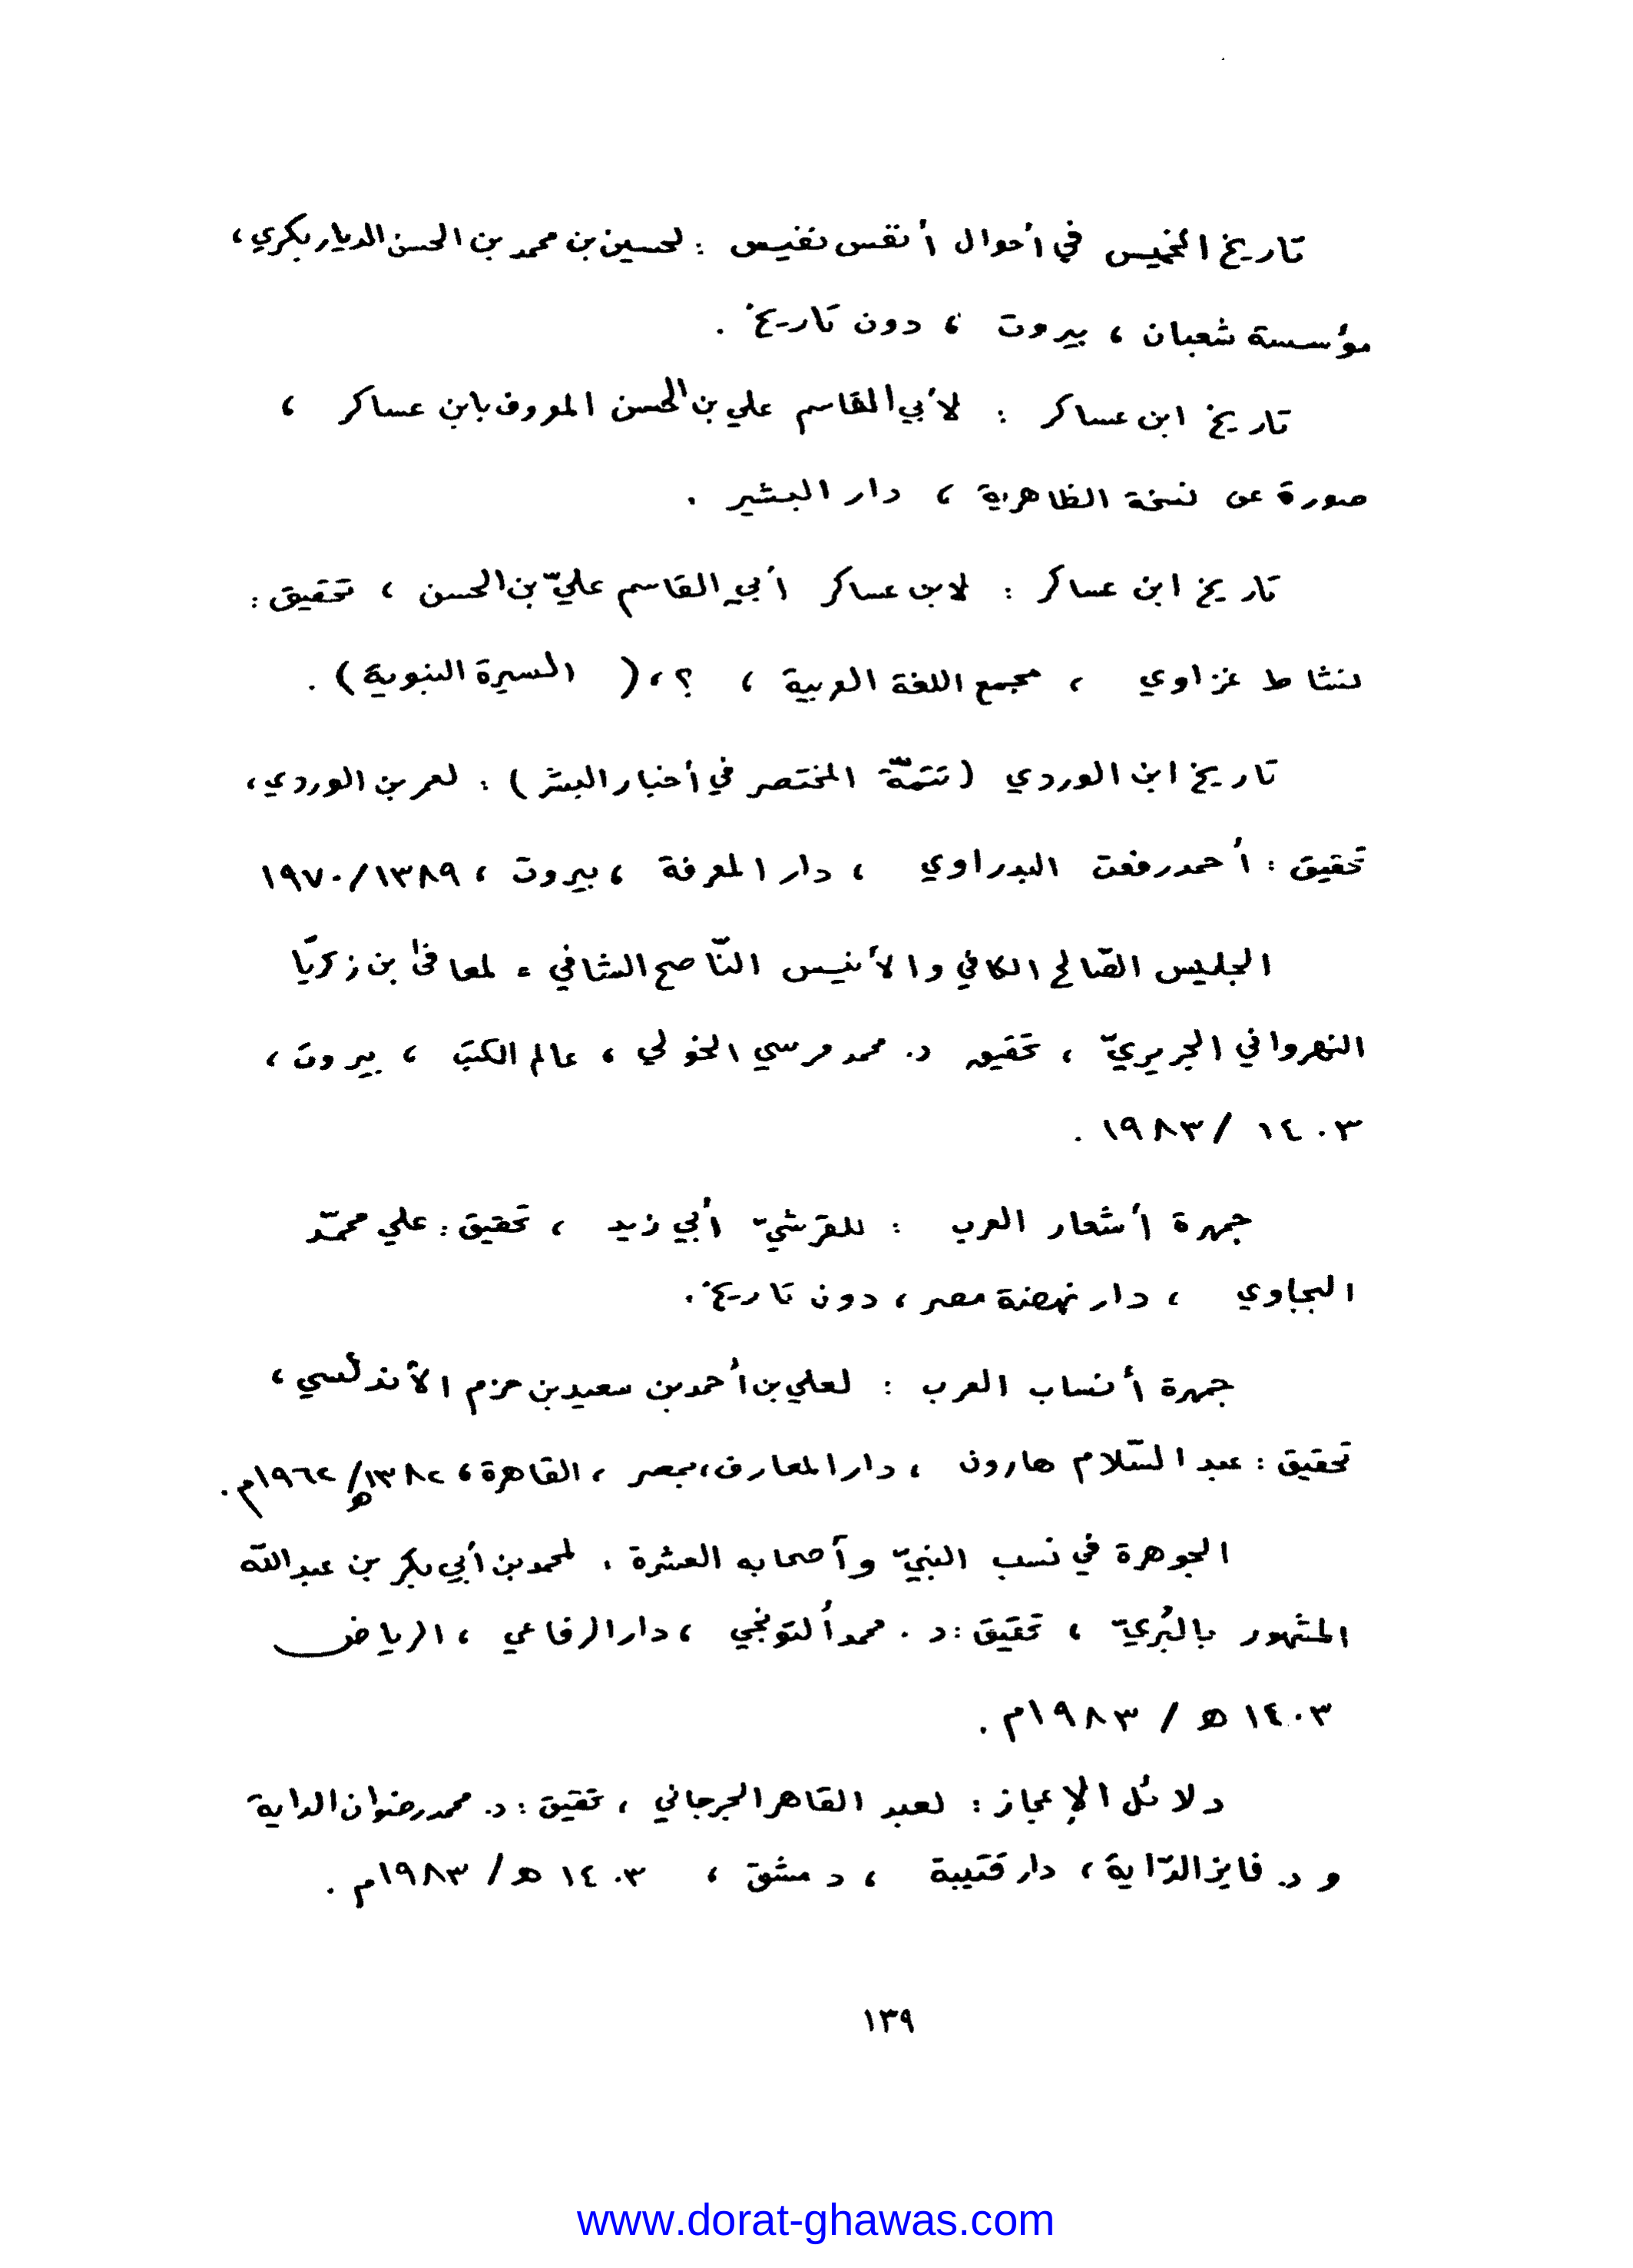 تاريخ الخميس في أحوال أنفس نفيس : لحسين بن محمد بن الحسن الديار بكري ،
مؤسسة شعبان ، بيروت ، دون تاريخ .
تاريخ ابن عساكر : لأبي القاسم علي بن الحسن المعروف بابن عساكر ،
صورة عن نسخة الظاهرية ، دار البشير .
تاريخ ابن عساكر : لابن عساكر أبي القاسم عليّ بن الحسن ، تحقيق :
نشاط غزاوي ، مجمع اللغة العربية ، ؟ ، ( السيرة النبوية ) .
تاريخ ابن الوردي ( تتمّة المختصر في أخبار البشر ) : لعمر بن الوردي ،
تحقيق : أحمد رفعت البدراوي ، دار المعرفة ، بيروت ، ١٣٨٩/١٩٧٠
الجليس الصّالح الكافي والأنيس النّاصح الشافي ء لمعافى بن زكريّا
النهرواني الجريريّ ، تحقيق د. محمد مرسي الخولي ، عالم الكتب ، بيروت ،
١٤٠٣ /١٩٨٣ .
جمهرة أشعار العرب : للقرشيّ أبي زيد ، تحقيق : علي محمّد
البجاوي ، دار نهضة مصر ، دون تاريخ .
جمهرة أنساب العرب : لعلي بن أحمد بن سعيد بن حزم الأندلسي ،
تحقيق : عبد السّلام هارون ، دار المعارف ، بمصر ، القاهرة ، ١٣٨٢هـ/١٩٦٢م .
الجوهرة في نسب النبيّ وأصحابه العشرة . لمحمد بن أبي بكر بن عبدالله
المشهور بالبُرّيّ ، تحقيق : د . محمد ألتونجي ، دار الرفاعي ، الرياض
١٤٠٣ هـ / ١٩٨٣م .
دلائل الإعجاز : لعبد القاهر الجرجاني ، تحقيق : د. محمد رضوان الداية
و د. فايز الدّاية ، دار قتيبة ، دمشق ، ١٤٠٣ هـ / ١٩٨٣م .
١٣٩
www.dorat-ghawas.com